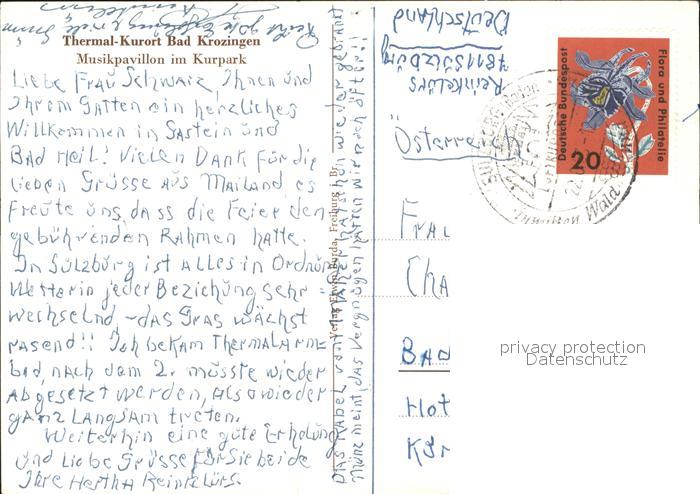 Recht gute Erholung u. viele
Thermal-Kurort Bad Krozingen
Musikpavillon im Kurpark
Liebe Frau Schwarz, Ihnen und
Ihrem Gatten ein herzliches
Willkommen in Gastein und
Bad Heil! Vielen Dank für die
lieben Grüsse aus Mailand es
freute uns, dass die Feier den
gebührenden Rahmen hatte.
In Sulzburg ist alles in Ordnung
Wetter in jeder Beziehung sehr
wechselnd – das Gras wächst
rasend!! Ich bekam Thermalarm=
bad, nach dem 2. müsste wieder
abgesetzt werden, also wieder
ganz langsam treten.
Weiterhin eine gute Erholung
und liebe Grüsse für Sie beide
Ihre Hertha Reinkelürs.
Das Kabel von hat schon wieder gebrannt
meint, das Vergnügen hätten wir noch öfter!!
Verlag Erwin Burda, Freiburg Br.
Reinkelürs
7811 Sulzburg
Deutschland
Österreich
Deutsche Bundespost
20
Flora und Philatelie
Fra
Cha
Bad
Hot
privacy protection
Datenschutz